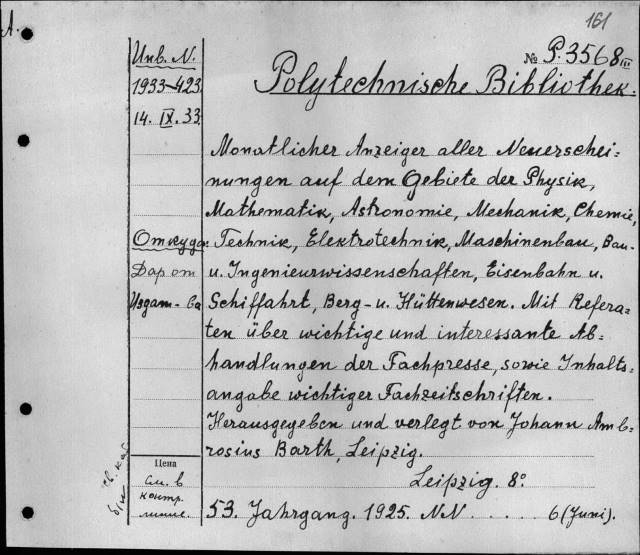 161
A.
№ P.3568 III
Polytechnische Bibliothek.
Инв. N.
1933-423
14. IX. 33
Monatlicher Anzeiger aller Neuerschei=
nungen auf dem Gebiete der Physik,
Mathematik, Astronomie, Mechanik, Chemie,
Technik, Elektrotechnik, Maschinenbau, Bau-
u. Ingenieurwissenschaften, Eisenbahn u.
Schiffahrt, Berg- u. Hüttenwesen. Mit Refera=
ten über wichtige und interessante Ab=
handlungen der Fachpresse, sowie Inhalts=
angabe wichtiger Fachzeitschriften.
Herausgegeben und verlegt von Johann Amb=
rosius Barth, Leipzig.
Leipzig. 8°
53. Jahrgang. 1925. NN ..... 6 (Juni).
Откуда:
Дар от
Издат-ва
Цена
см. в
контр.